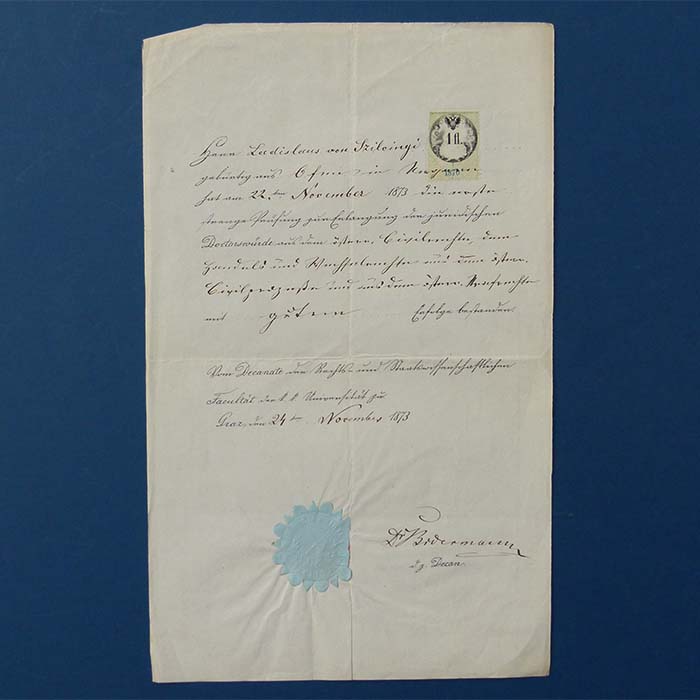 1 fl.
1870
Herr Ladislaus von Szilvinyi
gebürtig aus Ofen in Ungarn
hat am 22ten November 1873 die erste
strenge Prüfung zur Erlangung der juridischen
Doctorswürde aus dem österr. Civilrechte, dem
Handels und Wechselrechte und dem österr.
Civilprozeße und aus dem österr. Strafrechte
mit gutem Erfolge bestanden.
Vom Decanate der Rechts- und Staatswissenschaftlichen
Facultät der k. k. Universität zu
Graz, den 24ten November 1873
Dr Bidermann
d. z. Decan.